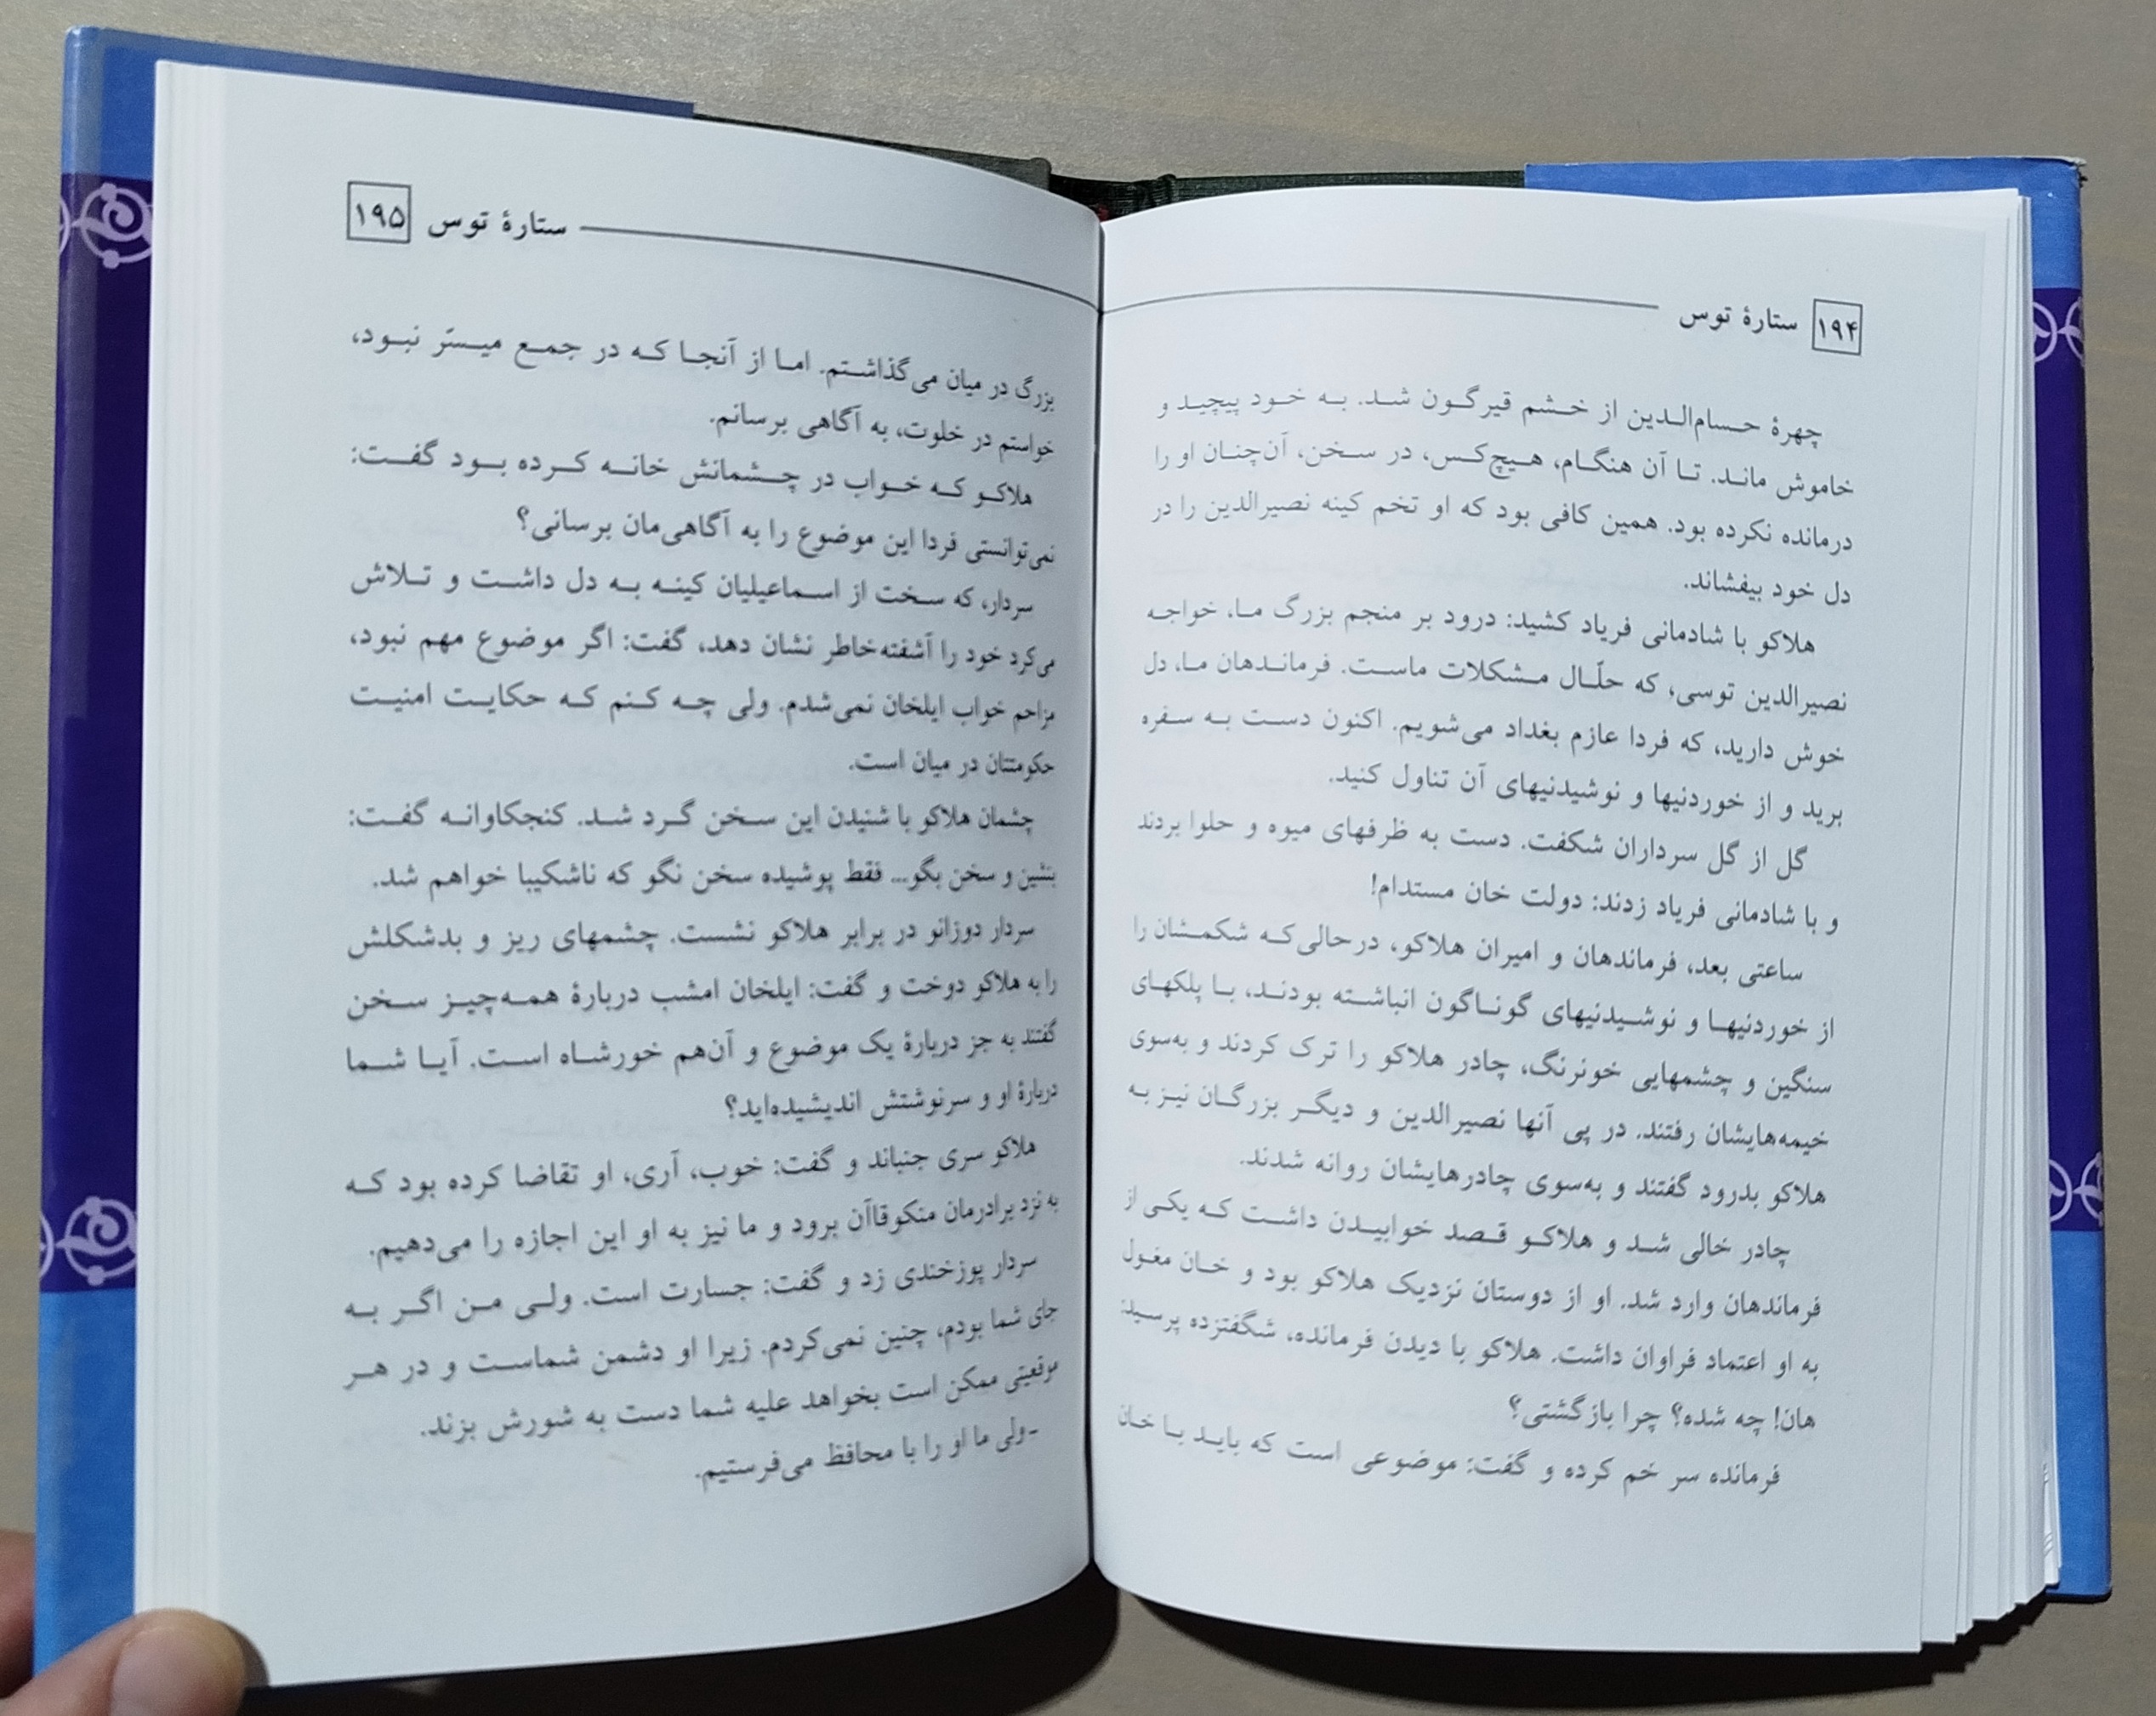 ۱۹۴ ستارۀ توس
چهرۀ حسام‌الدین از خشم قیرگون شد. به خود پیچید و
خاموش ماند. تا آن هنگام، هیچ‌کس، در سخن، آن‌چنان او را
درمانده نکرده بود. همین کافی بود که او تخم کینه نصیرالدین را در
دل خود بیفشاند.
هلاکو با شادمانی فریاد کشید: درود بر منجم بزرگ ما، خواجه
نصیرالدین توسی، که حلّال مشکلات ماست. فرماندهان ما، دل
خوش دارید، که فردا عازم بغداد می‌شویم. اکنون دست به سفره
برید و از خوردنیها و نوشیدنیهای آن تناول کنید.
گل از گل سرداران شکفت. دست به ظرفهای میوه و حلوا بردند
و با شادمانی فریاد زدند: دولت خان مستدام!
ساعتی بعد، فرماندهان و امیران هلاکو، درحالی‌که شکمشان را
از خوردنیها و نوشیدنیهای گوناگون انباشته بودند، با پلکهای
سنگین و چشمهایی خونرنگ، چادر هلاکو را ترک کردند و به‌سوی
خیمه‌هایشان رفتند. در پی آنها نصیرالدین و دیگر بزرگان نیز به
هلاکو بدرود گفتند و به‌سوی چادرهایشان روانه شدند.
چادر خالی شد و هلاکو قصد خوابیدن داشت که یکی از
فرماندهان وارد شد. او از دوستان نزدیک هلاکو بود و خان مغول
به او اعتماد فراوان داشت. هلاکو با دیدن فرمانده، شگفتزده پرسید:
هان! چه شده؟ چرا بازگشتی؟
فرمانده سر خم کرده و گفت: موضوعی است که باید با خان
ستارۀ توس ۱۹۵
بزرگ در میان می‌گذاشتم. اما از آنجا که در جمع میسّر نبود،
خواستم در خلوت، به آگاهی برسانم.
هلاکو که خواب در چشمانش خانه کرده بود گفت:
نمی‌توانستی فردا این موضوع را به آگاهی‌مان برسانی؟
سردار، که سخت از اسماعیلیان کینه به دل داشت و تلاش
می‌کرد خود را آشفته‌خاطر نشان دهد، گفت: اگر موضوع مهم نبود،
مزاحم خواب ایلخان نمی‌شدم. ولی چه کنم که حکایت امنیت
حکومتتان در میان است.
چشمان هلاکو با شنیدن این سخن گرد شد. کنجکاوانه گفت:
بنشین و سخن بگو... فقط پوشیده سخن نگو که ناشکیبا خواهم شد.
سردار دوزانو در برابر هلاکو نشست. چشمهای ریز و بدشکلش
را به هلاکو دوخت و گفت: ایلخان امشب دربارۀ همه‌چیز سخن
گفتند به جز دربارۀ یک موضوع و آن‌هم خورشاه است. آیا شما
دربارۀ او و سرنوشتش اندیشیده‌اید؟
هلاکو سری جنباند و گفت: خوب، آری، او تقاضا کرده بود که
به نزد برادرمان منکوقاآن برود و ما نیز به او این اجازه را می‌دهیم.
سردار پوزخندی زد و گفت: جسارت است. ولی من اگر به
جای شما بودم، چنین نمی‌کردم. زیرا او دشمن شماست و در هر
موقعیتی ممکن است بخواهد علیه شما دست به شورش بزند.
-ولی ما او را با محافظ می‌فرستیم.